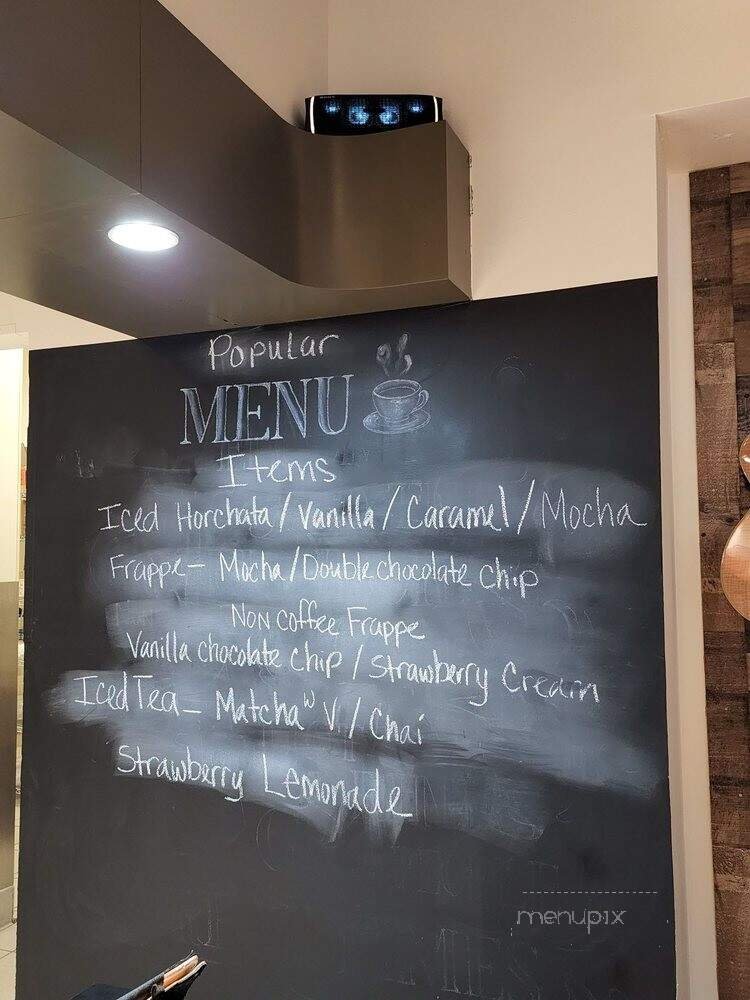 Popular
MENU
Items
Iced Horchata/Vanilla/Caramel/Mocha
Frappe- Mocha/Double chocolate chip
Non coffee Frappe
Vanilla chocolate chip/Strawberry Cream
Iced Tea- Matcha w V/Chai
Strawberry Lemonade
menupix